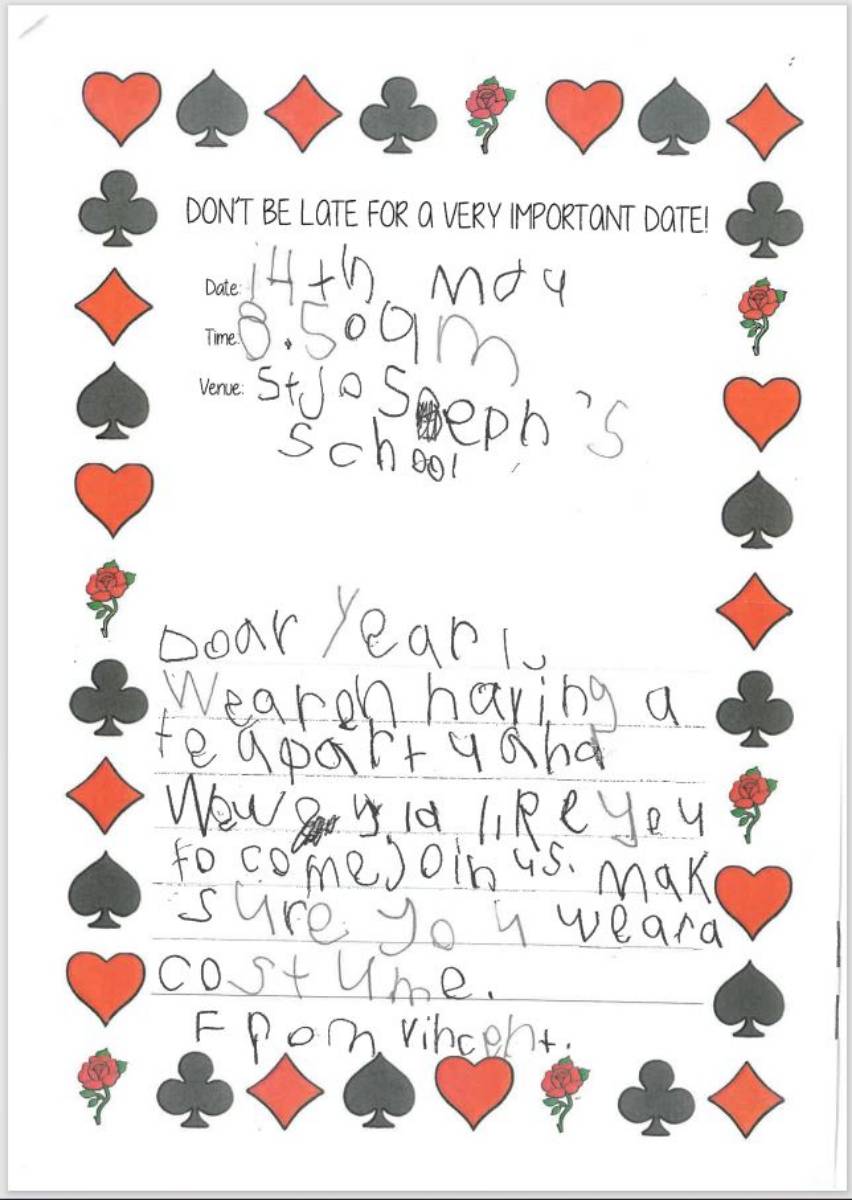 DON'T BE LATE FOR A VERY IMPORTANT DATE!
Date: 14th May
Time: 8.50am
Venue: St Joseph's
school
Doar Year 1,
Wearen having a
teaparty and
We would like you
to come join us. mak
sure you weara
costume.
Fpom Vincent.